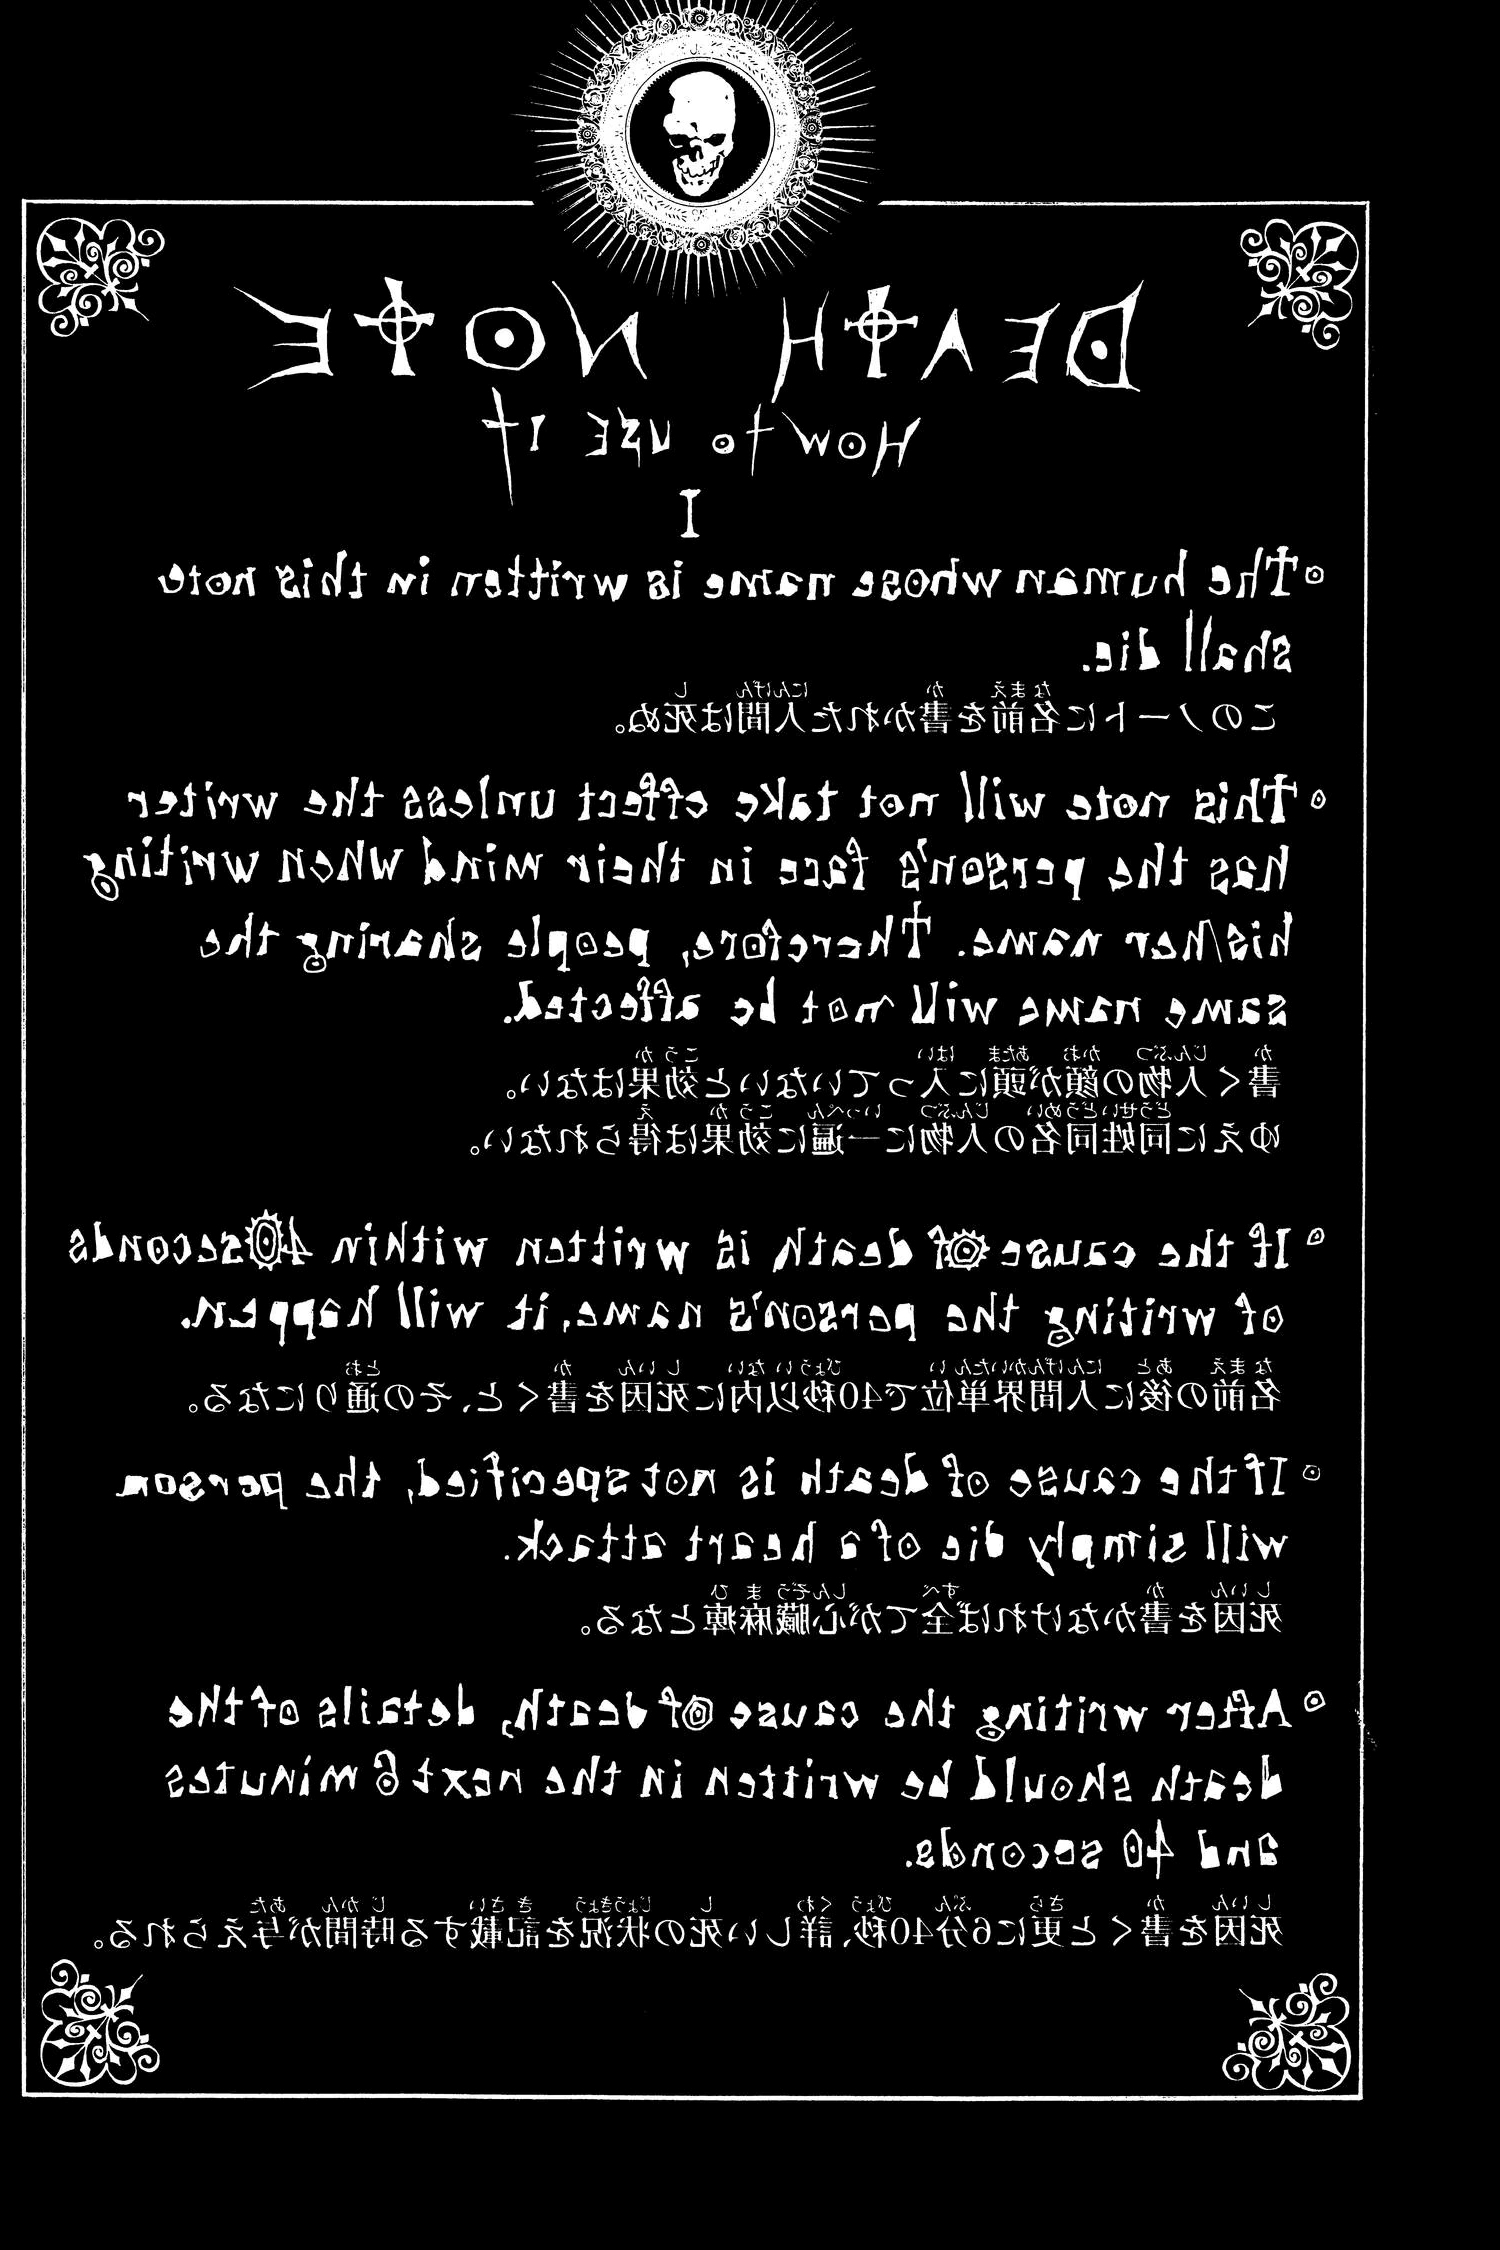 DEATH NOTE
HOW to USE IT
I
The human whose name is written in this note
shall die.
なまえ か にんげん し
このノートに名前を書かれた人間は死ぬ。
This note will not take effect unless the writer
has the person's face in their mind when writing
his/her name. Therefore, people sharing the
same name will not be affected.
か じんぶつ かお あたま はい こうか
書く人物の顔が頭に入っていないと効果はない。
どうせいどうめい じんぶつ いっぺん こうか え
ゆえに同姓同名の人物に一遍に効果は得られない。
If the cause of death is written within 40 seconds
of writing the person's name, it will happen.
なまえ あと にんげんかいたんい びょういない しいん か とお
名前の後に人間界単位で40秒以内に死因を書くと、その通りになる。
If the cause of death is not specified, the person
will simply die of a heart attack.
しいん か すべ しんぞうまひ
死因を書かなければ全てが心臓麻痺となる。
After writing the cause of death, details of the
death should be written in the next 6 minutes
and 40 seconds.
しいん か さら ぷん びょう くわ し じょうきょう きさい じかん あた
死因を書くと更に6分40秒、詳しい死の状況を記載する時間が与えられる。